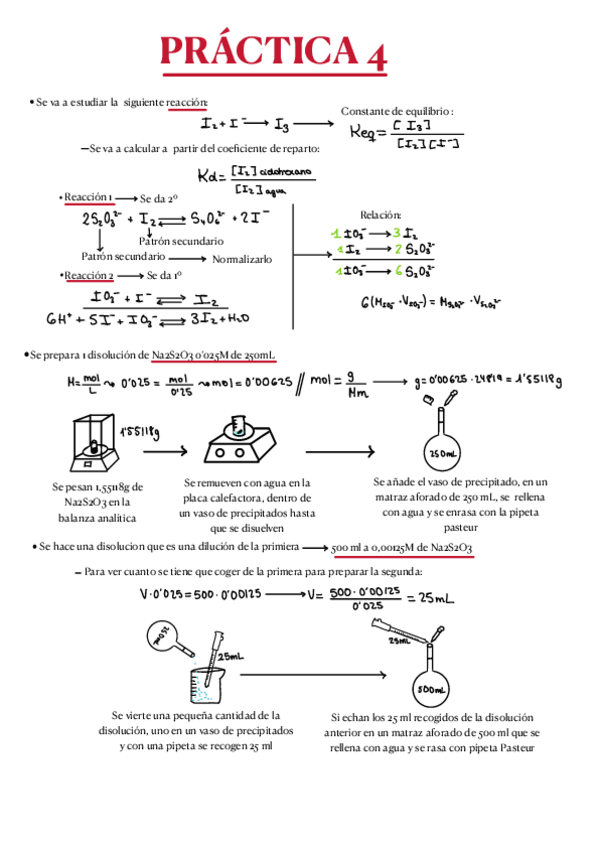 PRÁCTICA 4
• Se va a estudiar la siguiente reacción:
I₂ + I⁻ → I₃ →
Constante de equilibrio :
Keq = [I₃] / [I₂][I⁻]
– Se va a calcular a partir del coeficiente de reparto:
Kd = [I₂] ciclohexano / [I₂] agua
• Reacción 1 → Se da 2º
2S₂O₃²⁻ + I₂ ⇌ S₄O₆²⁻ + 2I⁻
Patrón secundario
Patrón secundario → Normalizarlo
• Reacción 2 → Se da 1º
IO₃⁻ + I⁻ ⇌ I₂
6H⁺ + 5I⁻ + IO₃⁻ ⇌ 3I₂ + H₂O
Relación:
1 IO₃⁻ → 3 I₂
1 I₂ → 2 S₂O₃²⁻
1 IO₃⁻ → 6 S₂O₃²⁻
6(M IO₃⁻ · V IO₃⁻) = M S₂O₃²⁻ · V S₂O₃²⁻
• Se prepara 1 disolución de Na2S2O3 0'025M de 250mL
M = mol/L ⤳ 0'025 = mol/0'25 ⤳ mol = 0'00625 // mol = g/Mm → g = 0'00625 · 248'19 = 1'55118g
1'55118g
250mL
Se pesan 1,55118g de
Na2S2O3 en la
balanza analítica
Se remueven con agua en la
placa calefactora, dentro de
un vaso de precipitados hasta
que se disuelven
Se añade el vaso de precipitado, en un
matraz aforado de 250 mL, se rellena
con agua y se enrasa con la pipeta
pasteur
• Se hace una disolucion que es una dilución de la primiera → 500 ml a 0,00125M de Na2S2O3
– Para ver cuanto se tiene que coger de la primera para preparar la segunda:
V · 0'025 = 500 · 0'00125 → V = 500 · 0'00125 / 0'025 = 25mL
250mL
25mL
25mL
500mL
Se vierte una pequeña cantidad de la
disolución, uno en un vaso de precipitados
y con una pipeta se recogen 25 ml
Si echan los 25 ml recogidos de la disolución
anterior en un matraz aforado de 500 ml que se
rellena con agua y se rasa con pipeta Pasteur